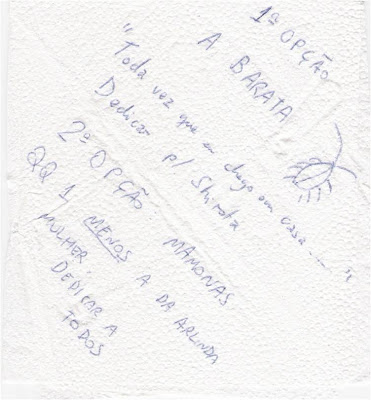 1ª OPÇÃO
A BARATA
"Toda vez que eu chego em casa...."
Dedicar p/ Shirota
2ª OPÇÃO: MAMONAS
QQ 1, MENOS A DA ARLINDA
MULHER.
DEDICAR A
TODOS